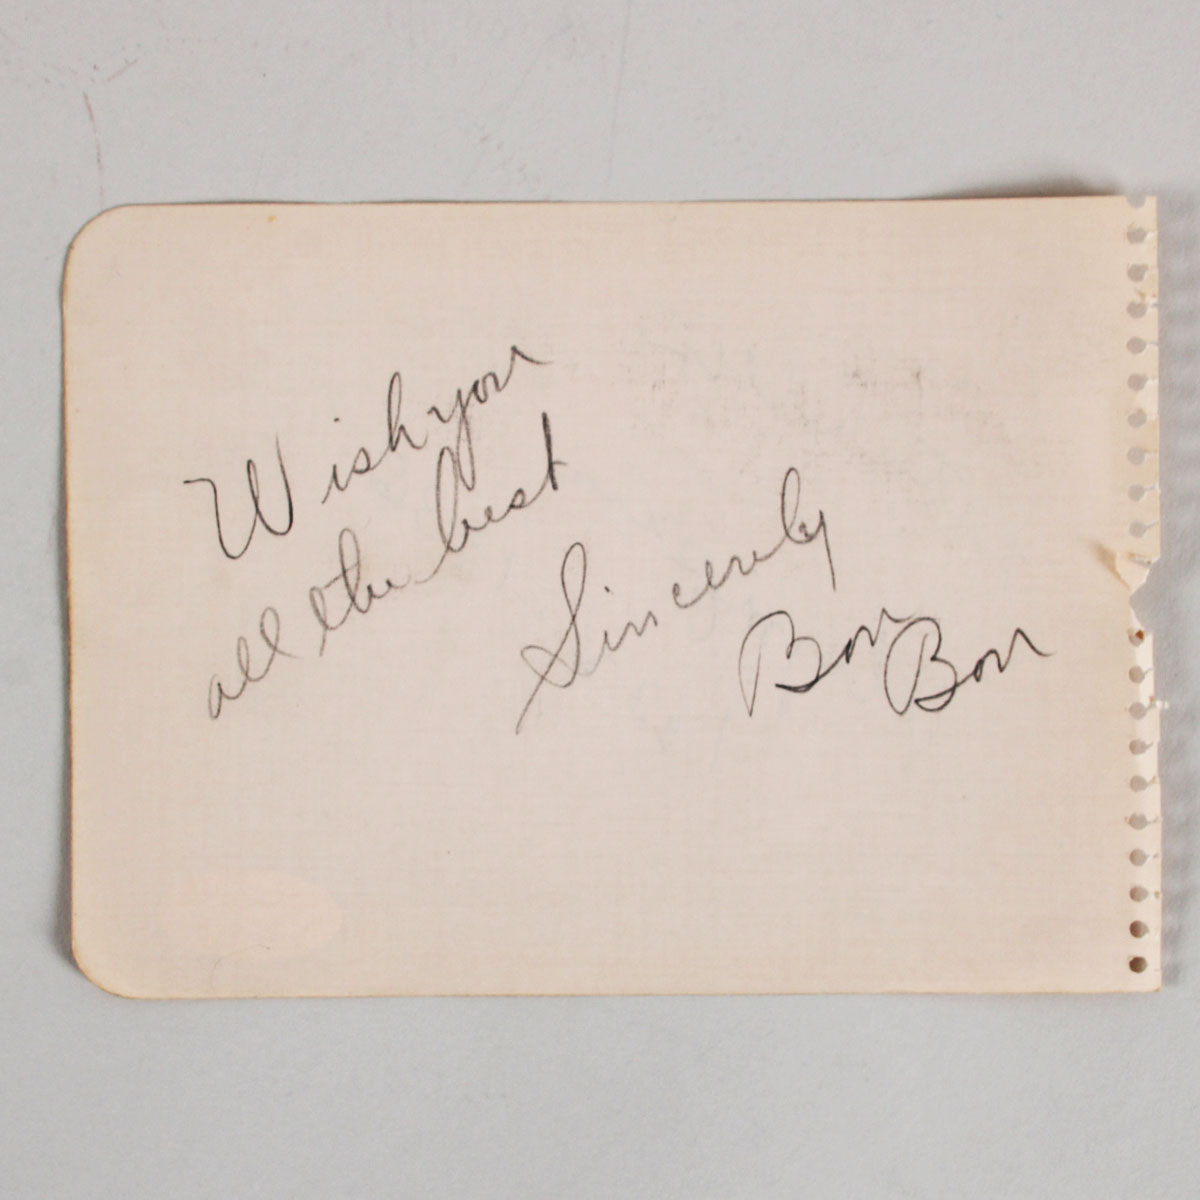 Wish you
all the best
Sincerely
Bon Bon